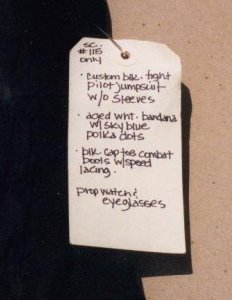 SC.
#115
only
· custom blk. tight
pilot jumpsuit
w/o sleeves
· aged wht. bandana
w/ sky blue
polka dots
· blk. cap toe combat
boots w/ speed
lacing.
prop watch &
eyeglasses